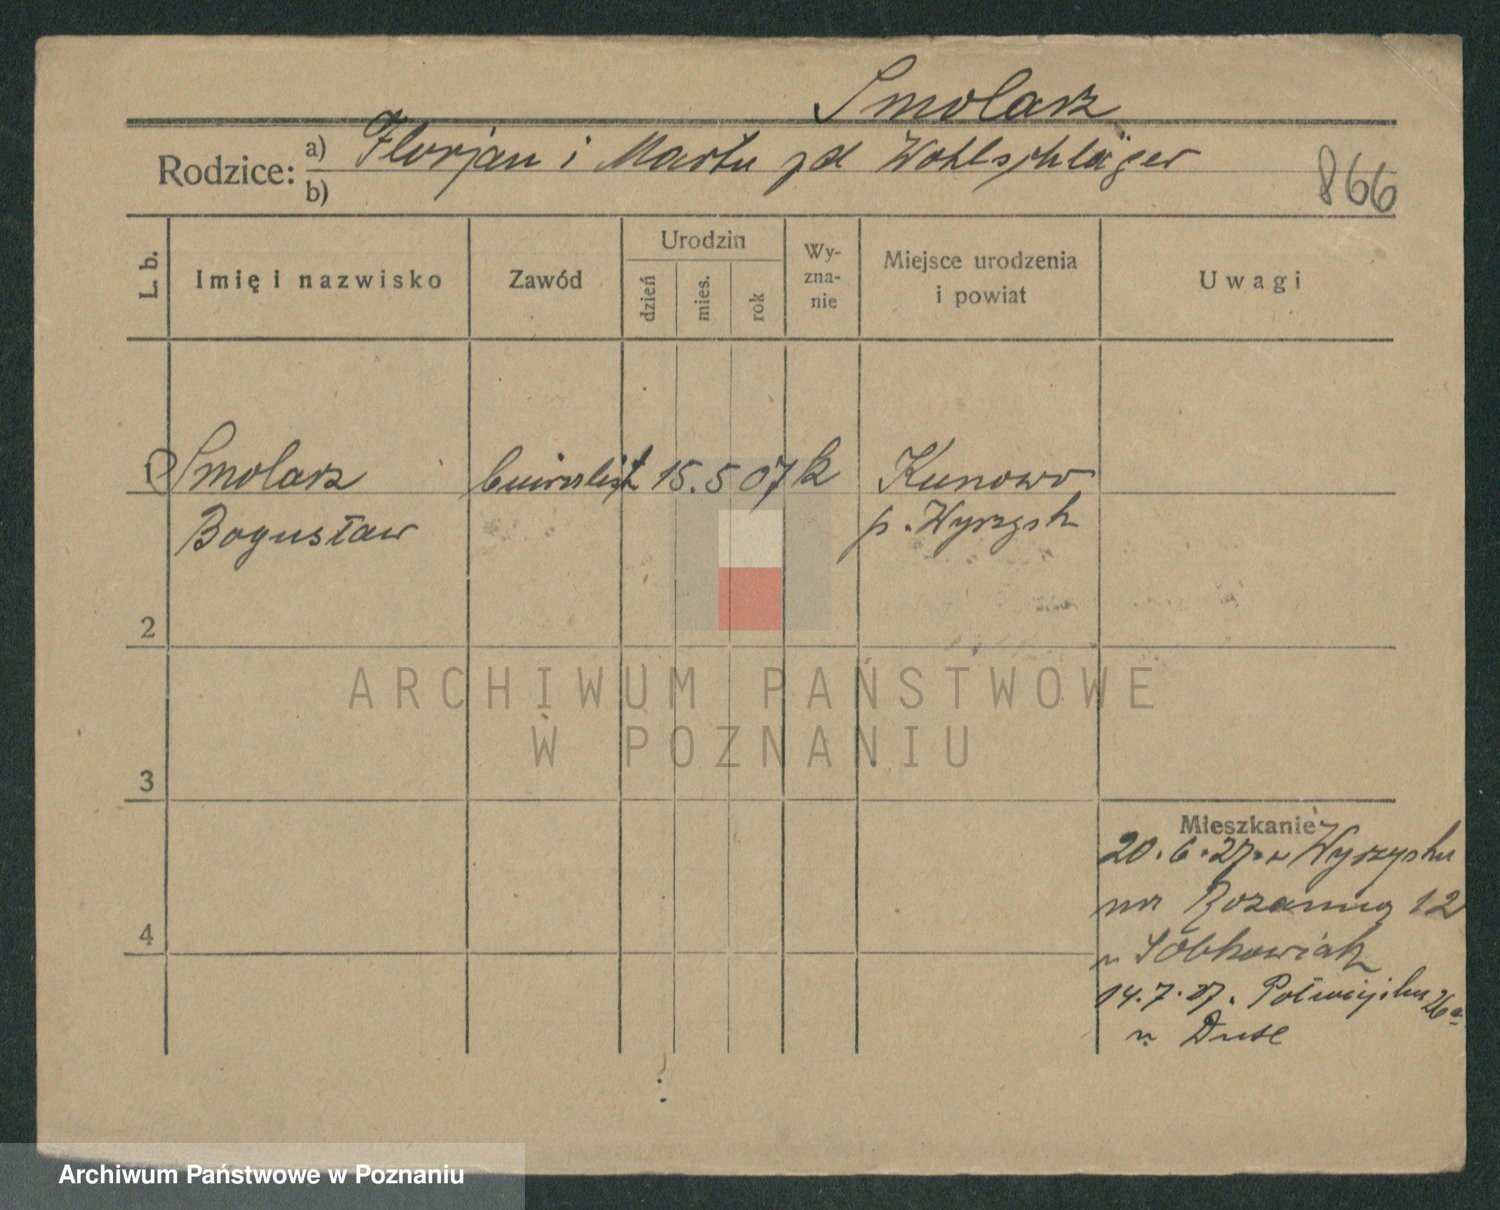 Smolarz
Rodzice: a) Florjan i Marta zd Wohlschläger
b)
866
L. b.
Imię i nazwisko
Zawód
Urodzin
dzień
mies.
rok
Wy-
zna-
nie
Miejsce urodzenia
i powiat
Uwagi
Smolarz 15. 5 07 k Kunowo
Bogusław p. Wyrzysk
2
3
4
ARCHIWUM PAŃSTWOWE
W POZNANIU
Mieszkanie
20. 6. 27. z Wyrzyska
12
u Sobkowiak
14. 7. 27. Półwiejska 26a
u Duse
Archiwum Państwowe w Poznaniu